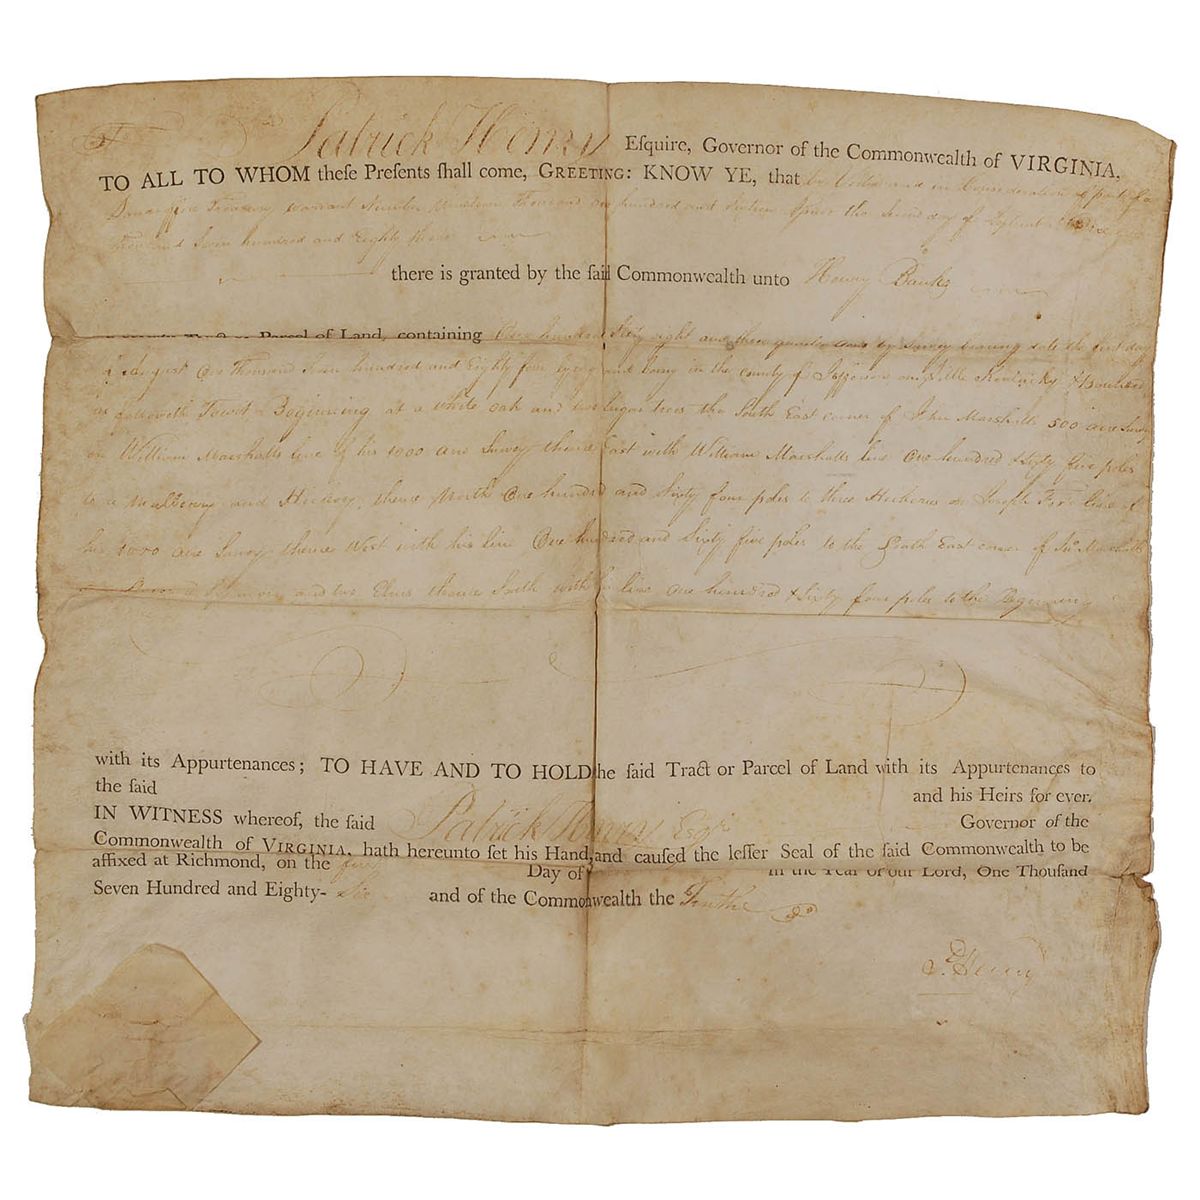 Patrick Henry Esquire, Governor of the Commonwealth of VIRGINIA,
TO ALL TO WHOM theſe Preſents ſhall come, GREETING: KNOW YE, that by Virtue and in Consideration of part of a
Treasury warrant Number Nineteen Thousand one hundred and Sixteen the Second day of
thousand Seven hundred and Eighty three
there is granted by the ſaid Commonwealth unto Henry Banks
Parcel of Land, containing One hundred Sixty eight and three quarter acres by survey bearing date the first day
of August One Thousand Seven hundred and Eighty four lying and being in the county of Jefferson on Kentucky & Bounded
as followeth Towit Beginning at a white oak and two Sugar trees the South East corner of John Marshalls 500 acre Survey
on William Marshalls line of his 1000 acre Survey thence East with William Marshalls line One hundred & Sixty five poles
to a Mulberry and Hickory thence North One hundred and Sixty four poles to three Hickories on Joseph line of
his 1000 acre Survey thence West with his line One hundred and Sixty five poles to the South East corner of Jno Marshalls
and two Elms thence South with his line One hundred & Sixty four poles to the Beginning
with its Appurtenances; TO HAVE AND TO HOLD the ſaid Tract or Parcel of Land with its Appurtenances to
the ſaid and his Heirs for ever.
IN WITNESS whereof, the ſaid Patrick Henry Esqr Governor of the
Commonwealth of VIRGINIA, hath hereunto ſet his Hand, and cauſed the leſſer Seal of the ſaid Commonwealth to be
affixed at Richmond, on the Day of in the Year of our Lord, One Thouſand
Seven Hundred and Eighty- Six and of the Commonwealth the Tenth
P. Henry